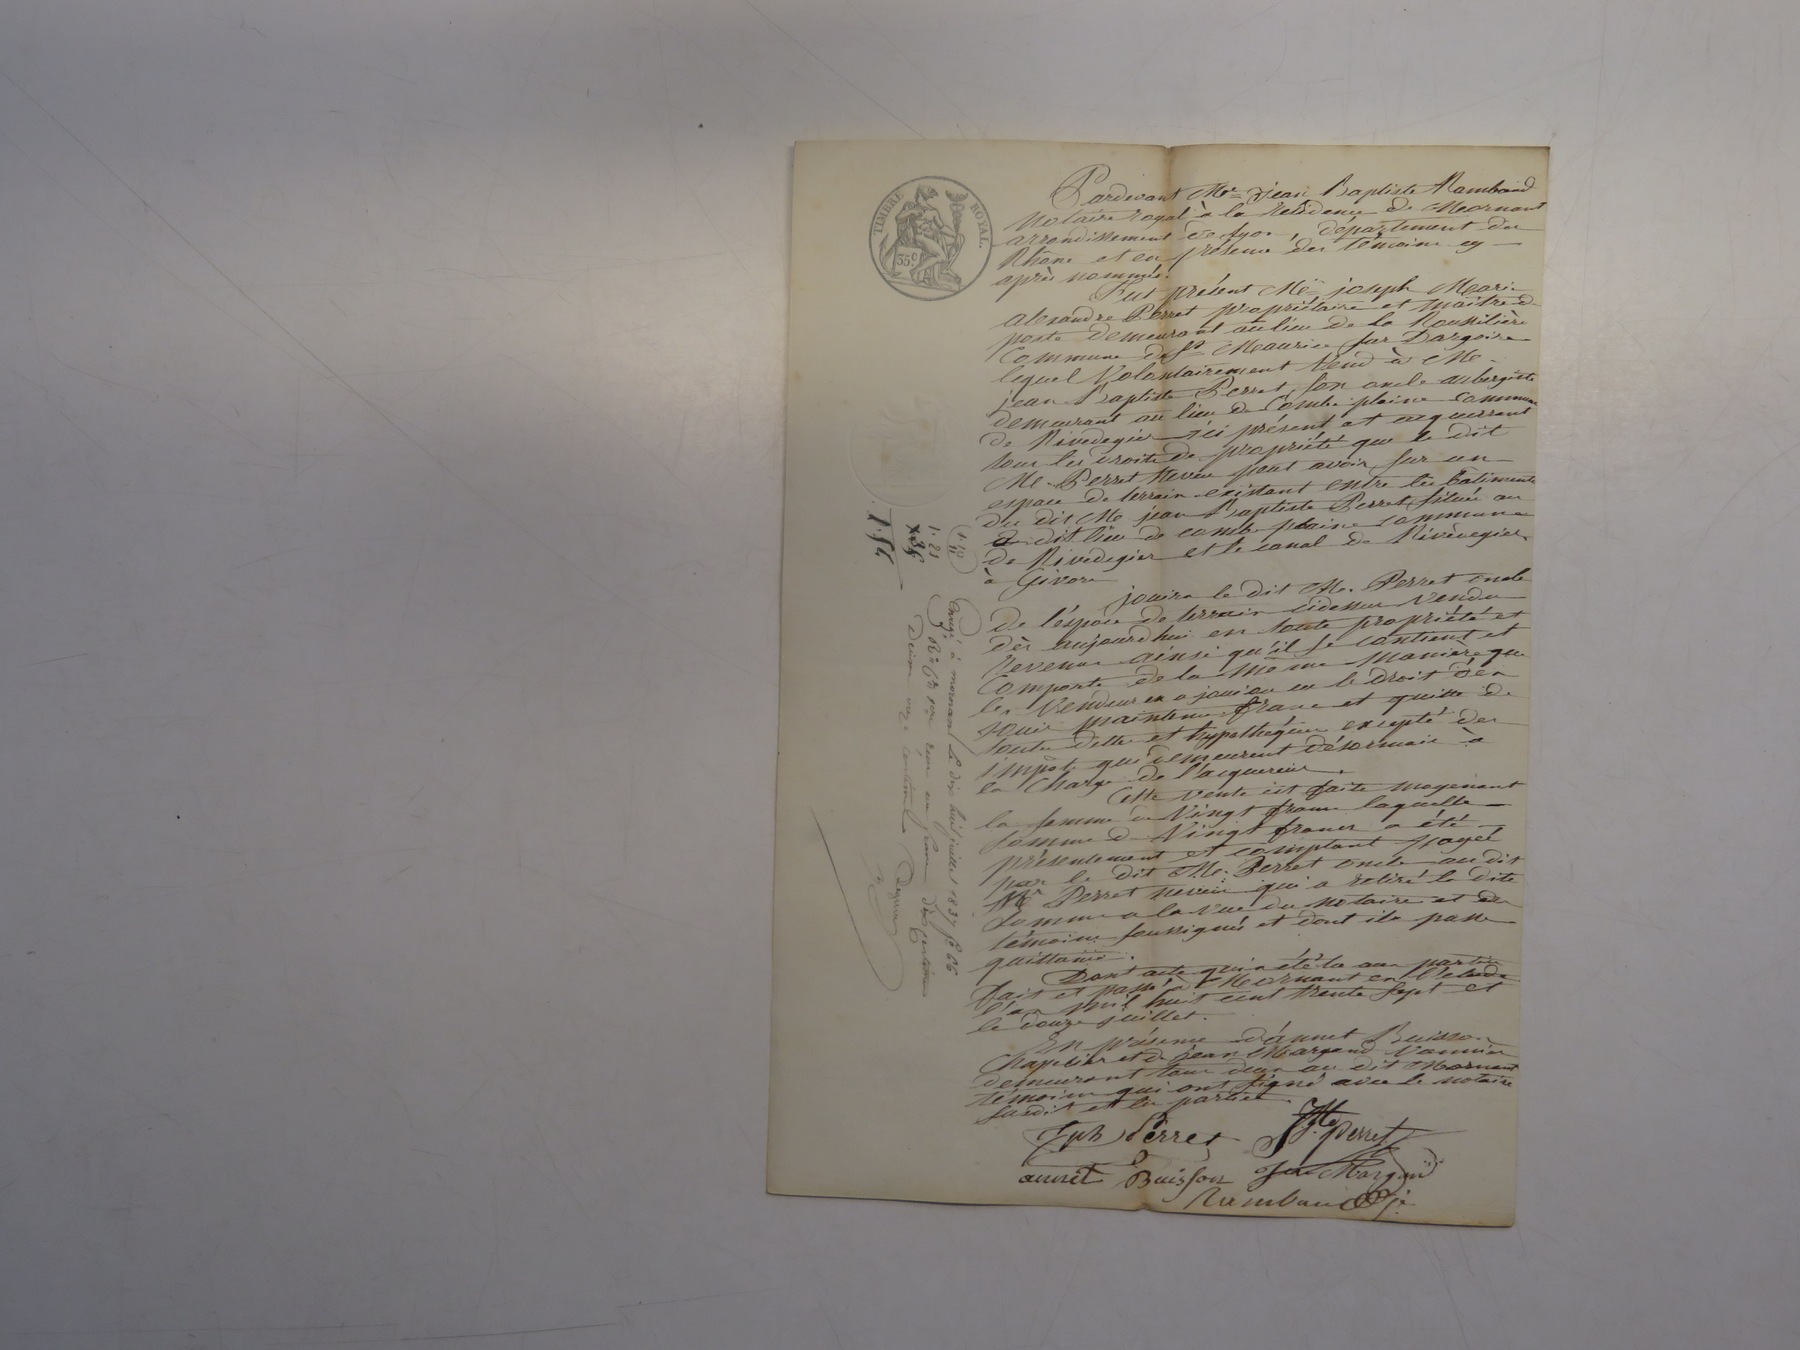 TIMBRE ROYAL.
35 c
Pardevant Me. Jean Baptiste Rambaud
Notaire royal à la résidence de Mornant
arrondissement de Lyon, département du
Rhône et en présence des témoins cy
après nommés.
Fut présent Mr. joseph Marie
Alexandre Perret propriétaire et maître de
poste demeurant au lieu de la Roussilière
Commune de St. Maurice sur Dargoire
lequel Volontairement Vend à Mr.
jean Baptiste Perret, son oncle aubergiste
demeurant au lieu de Combe plaine commune
de Rivedegier ici présent et acquerrant
tous les droits de propriété que le dit
Mr. Perret Neveu peut avoir sur un
espace de terrain existant entre les bâtiments
du dit Mr jean Baptiste Perret situés au
dit lieu de combe plaine commune
de Rivedegier et le canal de Rivedegier
à Givors
jouira le dit Mr. Perret oncle
De l'espace de terrain cidessus Vendu
dès aujourdhui en toute propriété et
revenu ainsi qu'il se contient et
Comporte de la même manière que
le Vendeur en a joui ou eu le droit d'en
jouir maintenu franc et quitte de
toute dette et hypothèque excepté des
impôts qui demeurent désormais à
la Charge de l'acquereur.
Cette vente est faite moyenant
la somme de Vingt francs laquelle
somme de Vingt francs a été
présentement et comptant payée
par le dit Mr. Perret oncle au dit
Mr Perret neveu qui a retiré la dite
somme a la vue du notaire et des
témoins soussignés et dont il a passé
quittance.
Dont acte qui a été lu aux parties
fait et passé à Mornant en l'étude
l'an mil huit cent trente sept et
le douze juillet.
En présence d'annet Buisson
Chapelier et de jean Margand Vannier
demeurant tous deux au dit Mornant
témoins qui ont signé avec le notaire
susdit et les parties.
Jph Perret
J. Bte Perret
annet Buisson Jean Margand
Rambaud
1.10
11
1.21
1.54
Enregé à mornant le dix huit juillet 1837 fo 66
Ro Co reçu un franc dix centimes
Decime onze centimes